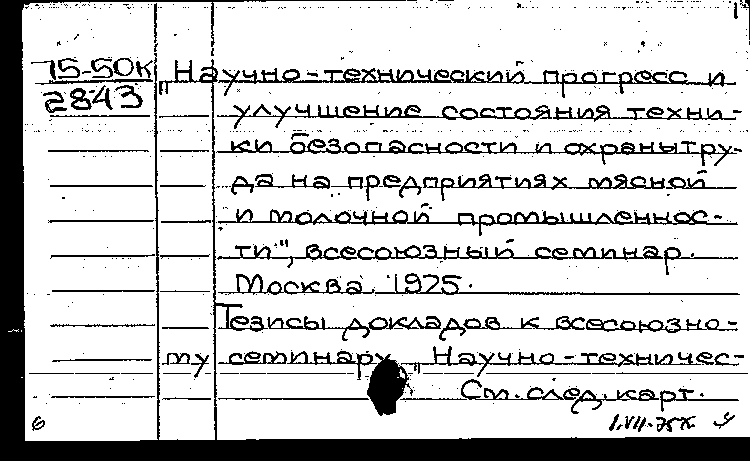 75-50К "Научно-технический прогресс и
2843 улучшение состояния техни-
ки безопасности и охраны тру-
да на предприятиях мясной
и молочной промышленнос-
ти", всесоюзный семинар.
Москва. 1975.
Тезисы докладов к всесоюзно-
му семинару "Научно-техничес-
См. след. карт.
6 1.VII-75г.